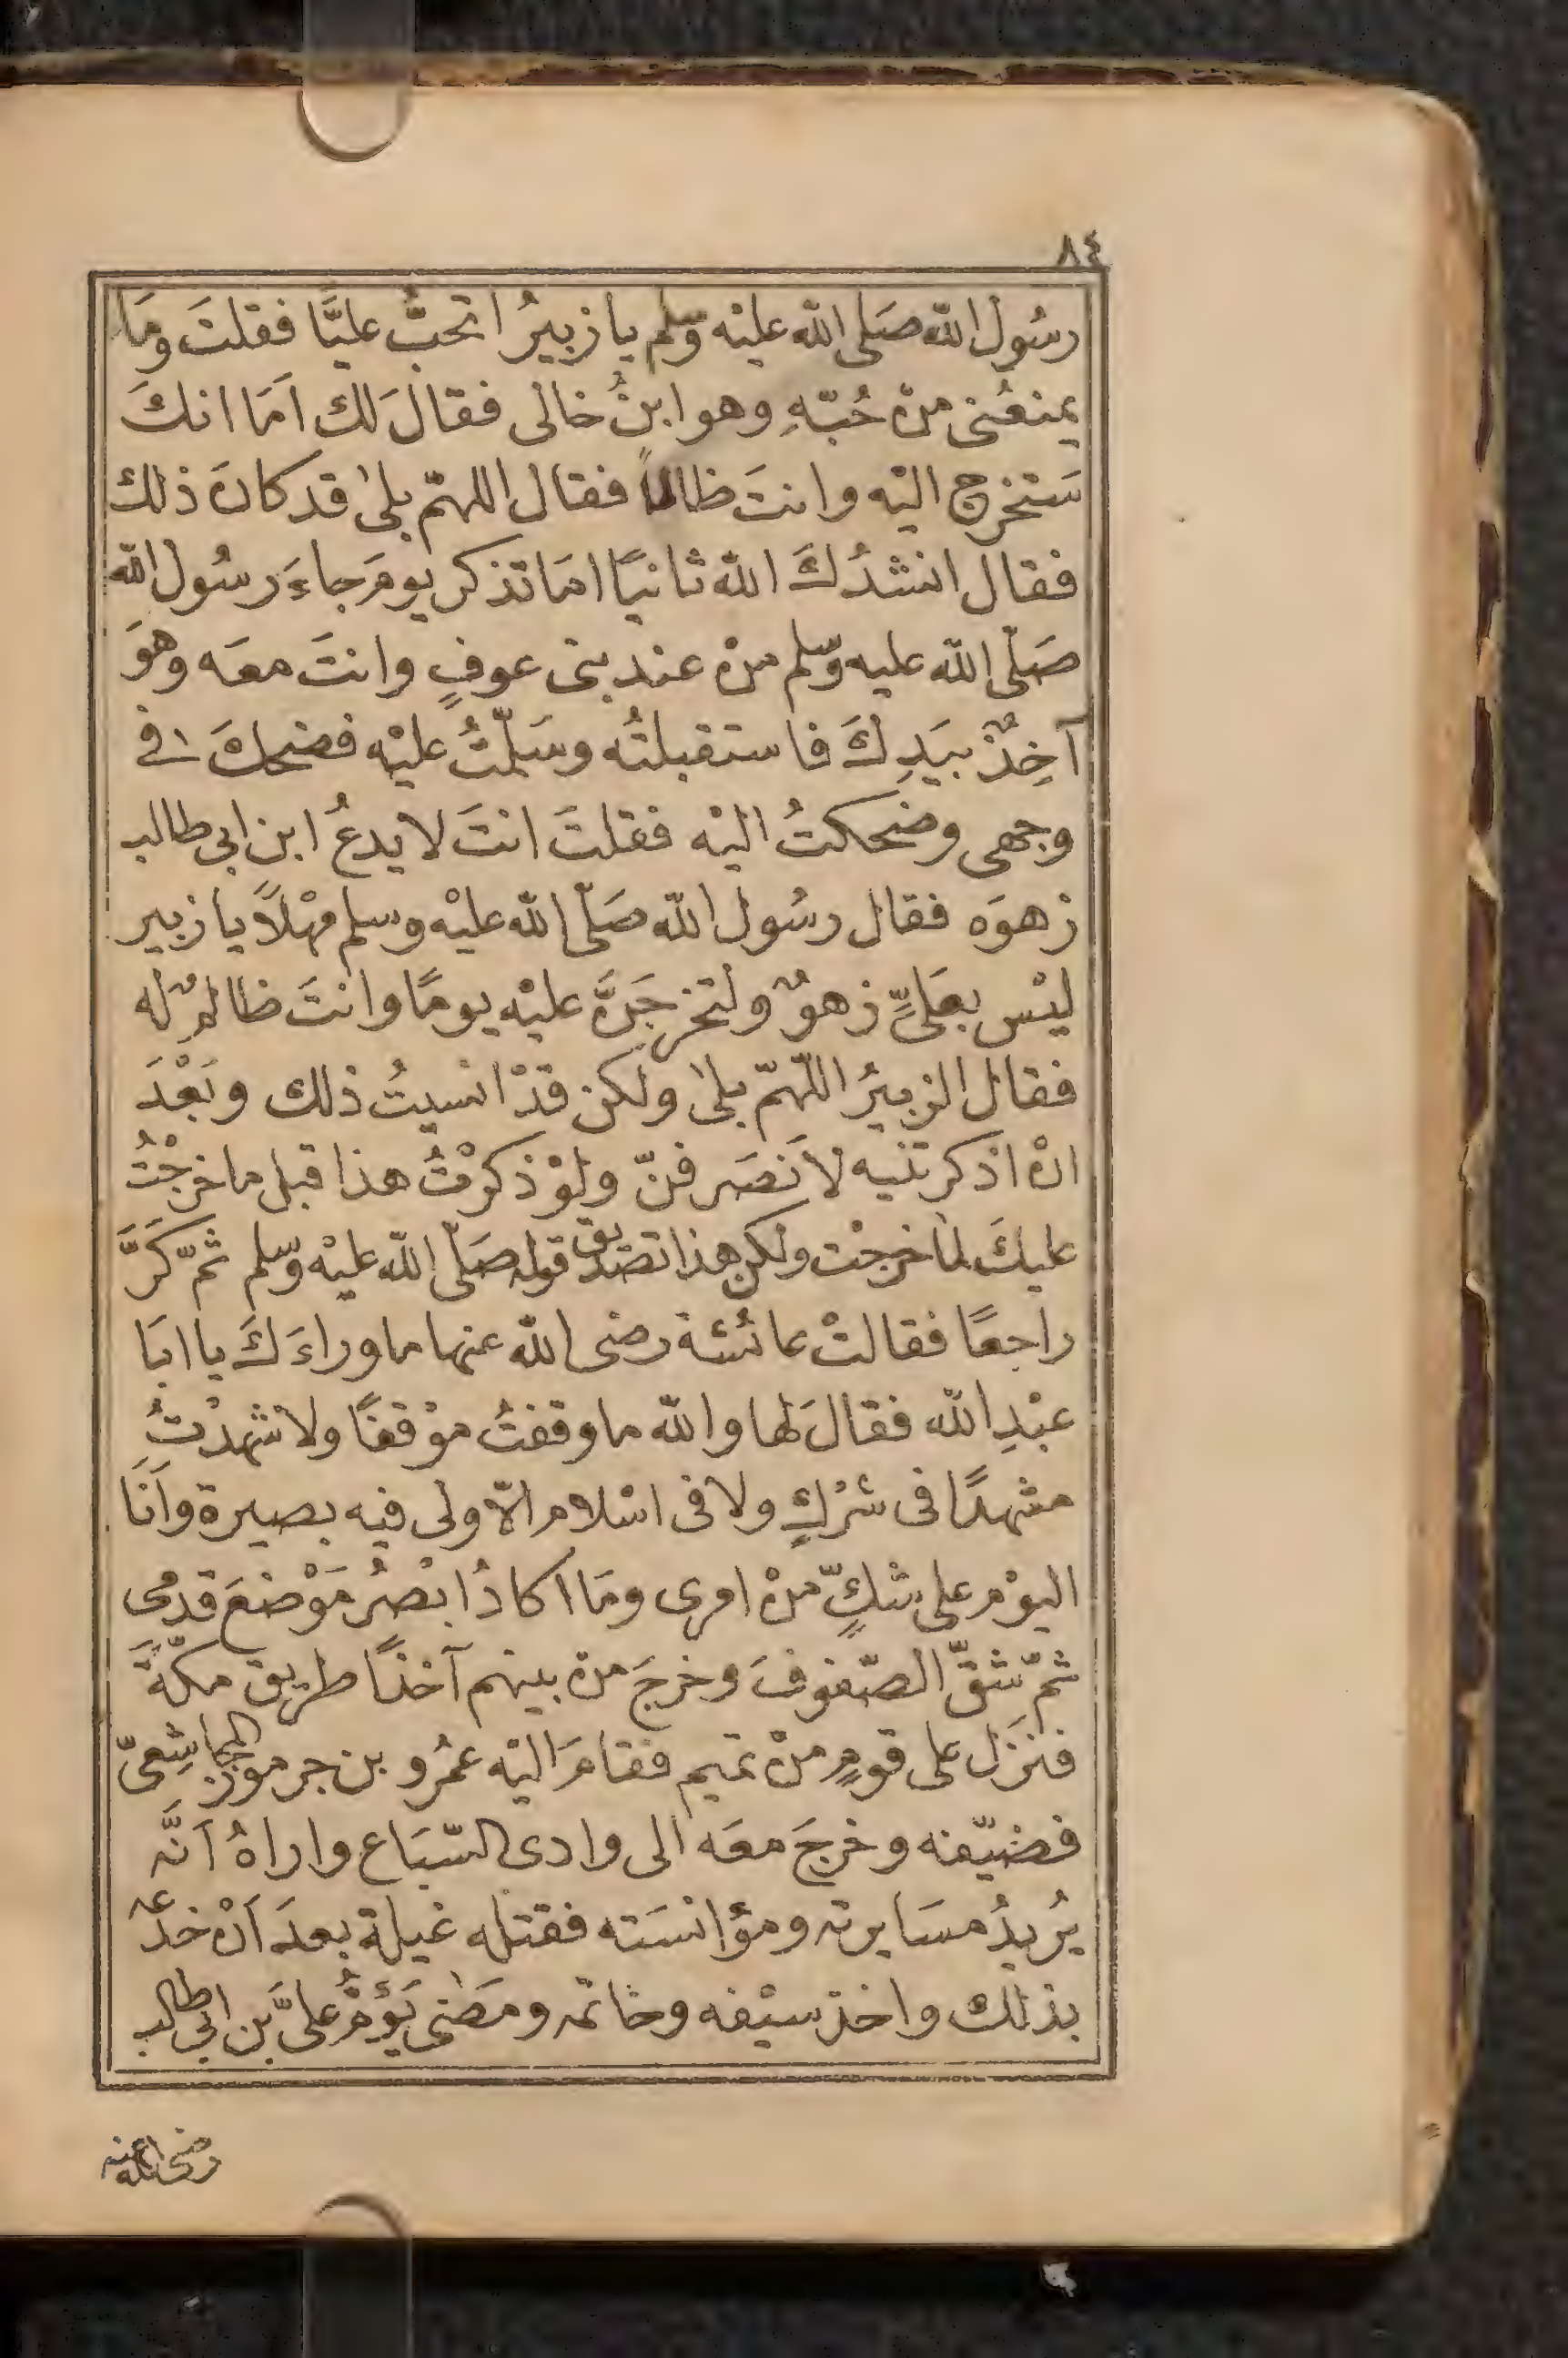 ٨٤
رسُول الله صَلى الله عليْه وسلم يا زبيرُ اتحبُّ عليًّا فقلتَ ومَا
يمنعُنى منْ حُبّهِ وهو ابنُ خالى فقالَ لك اَمَا انكَ
سَتخرج اليْه وانتَ ظالماً فقال اللهمّ بلىٰ قد كانَ ذلك
فقال انشدُكَ الله ثانيًا امَا تذكر يومَ جاءَ رسُول الله
صَلّى الله عليه وسّلم منْ عند بنى عوفٍ وانتَ معَه وهوَ
آخِذٌ بيَدِكَ فاستقبلتُه وسَلّمتُ عليْه فضحكَ فى
وجهى وضحكتُ اليْه فقلتَ انتَ لا يدعُ ابن ابى طالب
زهوَه فقال رسُول الله صَلّى الله عليْه وسلم مهْلاً يا زبير
ليْس بعَلىٍّ زهوٌ ولتخرجَنَّ عليْه يومًا وانتَ ظالمٌ له
فقال الزبيرُ اللّهمّ بلىٰ ولكن قدْ انسيتُ ذلك وبَعْدَ
انْ اذكرتنيه لاَنصَرفنّ ولوْ ذكرْتُ هذا قبل ما خرجْتُ
عليكَ لما خرجْت ولكن هذا تصْديق قوله صَلّى الله عليْه وسّلم ثمّ كَرَّ
راجعًا فقالتْ عائشة رضى الله عنها ما وراءَكَ يا ابَا
عبْدِ الله فقالَ لها والله ما وقفتُ موْقفًا ولا شهدْتُ
مشهدًا فى شرْكٍ ولا فى اسْلام الاّ ولى فيه بصيرة وَاَنَا
اليوْم على شكٍّ منْ امرى ومَا اكادُ ابْصرُ مَوْضعَ قدمى
ثمّ شقّ الصّفوفَ وخرجَ من بينهم آخذًا طريق مكّةَ
فنزَل على قومٍ منْ تميم فقامَ اليْه عمْرو بن جرموز المجاشِعىّ
فضيّفه وخرجَ معَه الى وادى السّبَاع واراهُ اَنَّه
يُريدُ مسَايرته ومؤانسَته فقتله غيلة بعدَ اَنْ خدَعه
بذلك واخذ سيْفه وخاتمه ومضَى يَؤمُّ علىَّ بن ابى طالب
رضى الله عنه